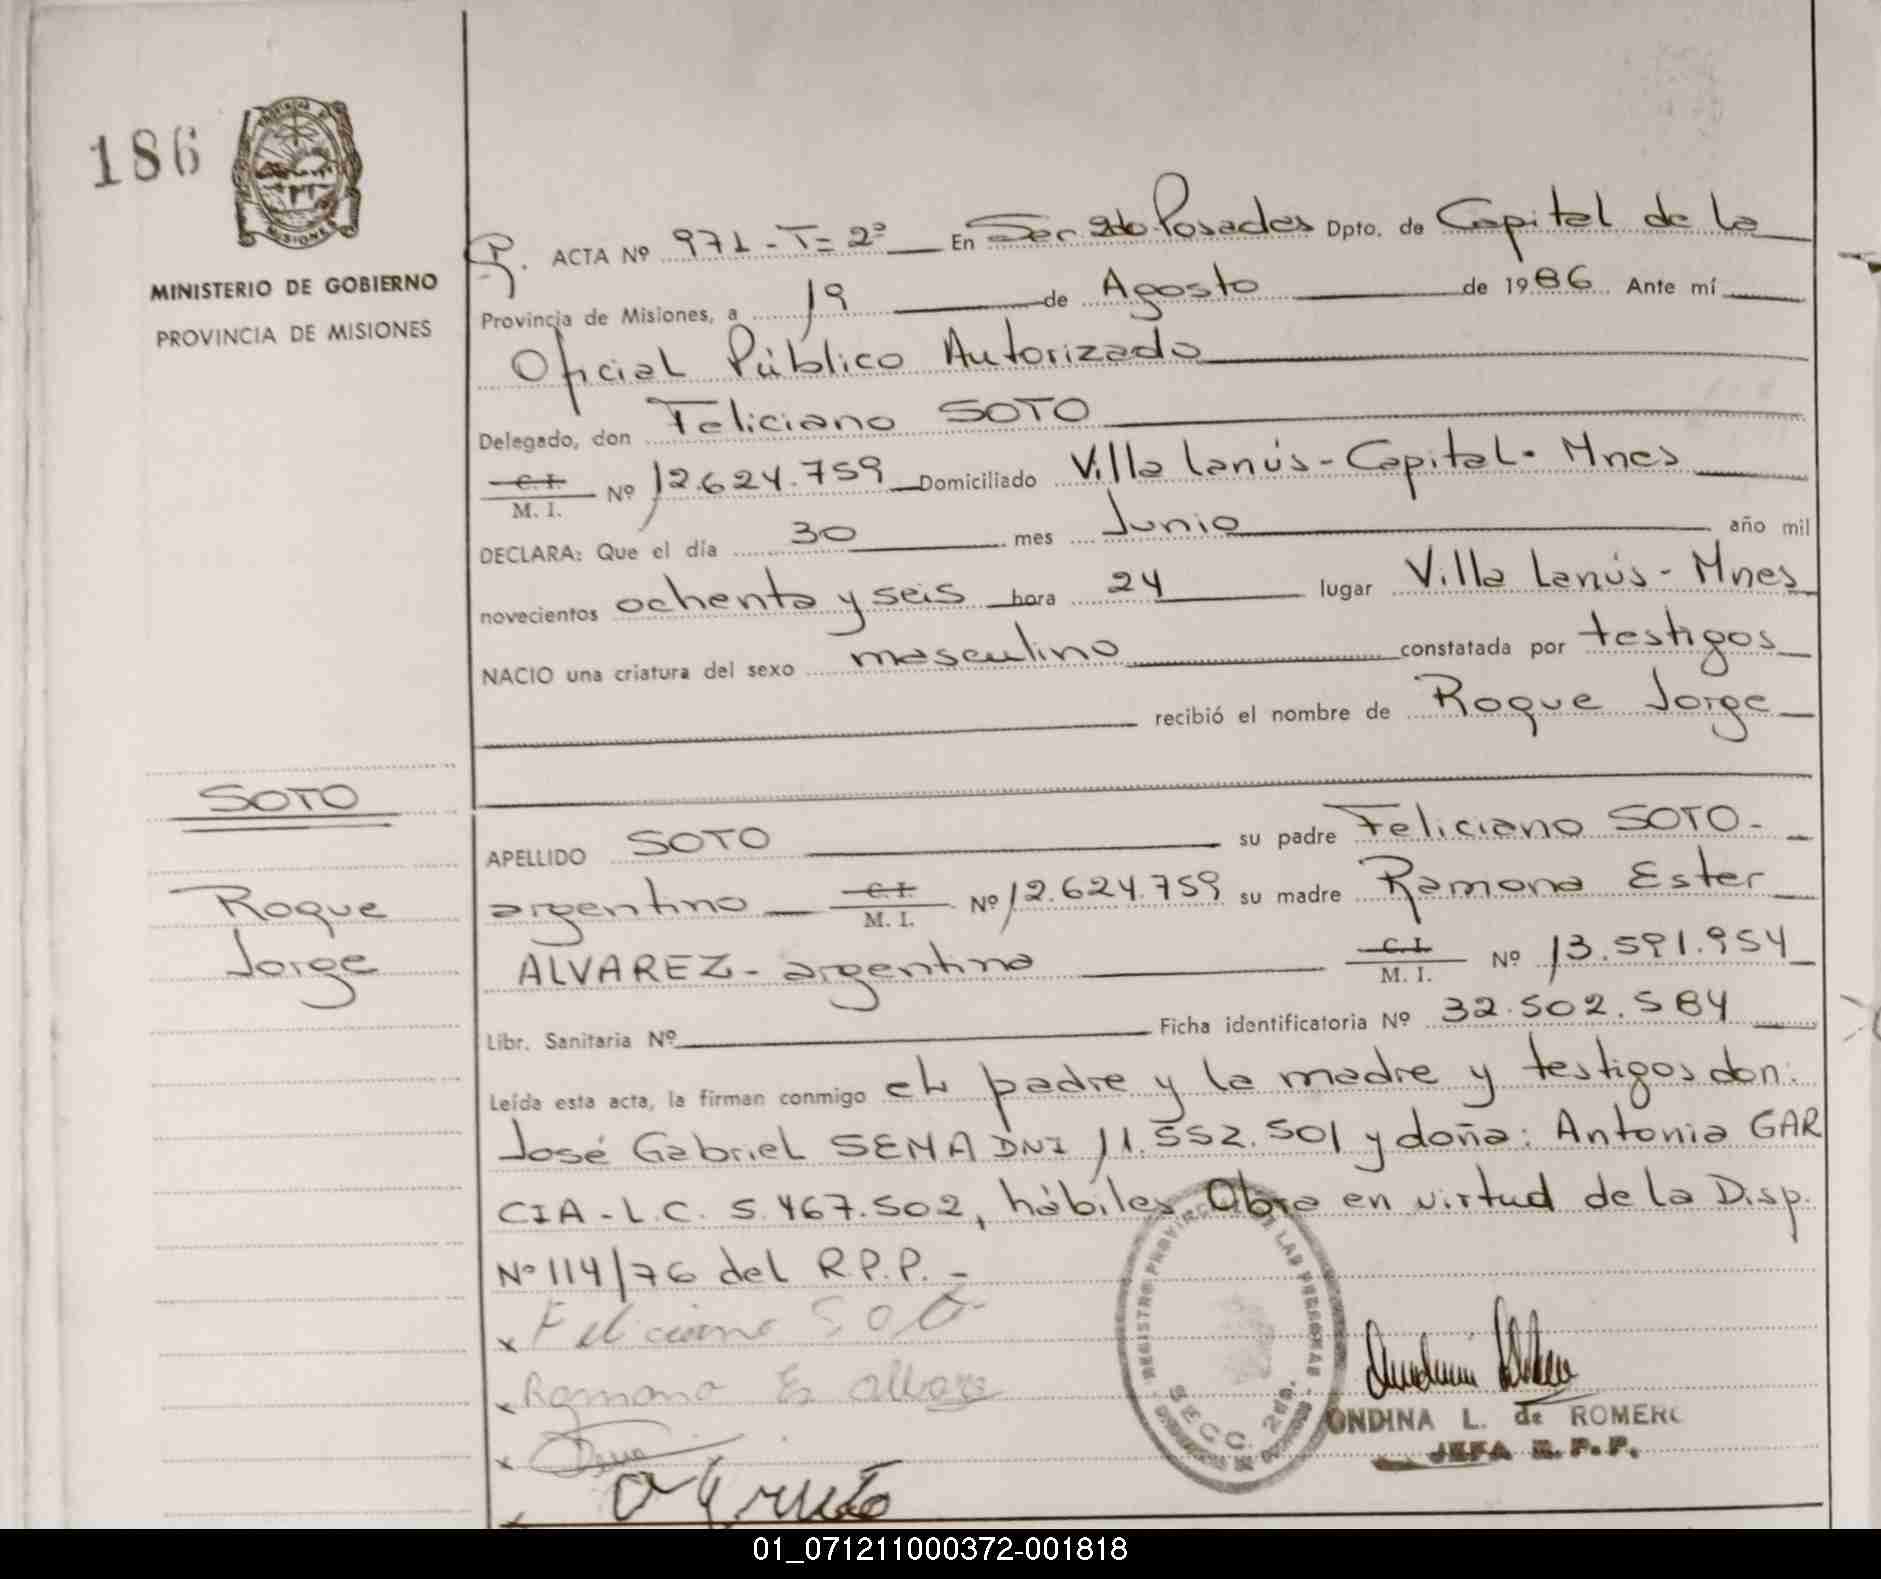 186
MISIONES
MINISTERIO DE GOBIERNO
PROVINCIA DE MISIONES
ACTA Nº 971 - T= 2º En Sec 2do Posadas Dpto. de Capital de la
Provincia de Misiones, a 19 de Agosto de 1986 Ante mí
Oficial Público Autorizado
Delegado, don Feliciano SOTO
C.I. M. I. Nº 12.624.759 Domiciliado Villa Lanús - Capital - Mnes
DECLARA: Que el día 30 mes Junio año mil
novecientos ochenta y seis hora 24 lugar Villa Lanús - Mnes
NACIO una criatura del sexo masculino constatada por testigos
recibió el nombre de Roque Jorge
SOTO
Roque
Jorge
APELLIDO SOTO su padre Feliciano SOTO -
argentino C.I. M. I. Nº 12.624.759 su madre Ramona Ester
ALVAREZ - argentina C.I. M. I. Nº 13.591.954
Libr. Sanitaria Nº Ficha identificatoria Nº 32.502.584
Leída esta acta, la firman conmigo el padre y la madre y testigos don:
José Gabriel SENA DNI 11.552.501 y doña: Antonia GAR
CIA - L.C. 5.467.502, hábiles Obra en virtud de la Disp.
Nº 114/76 del R.P.P. -
x Feliciano Soto
x Ramona E alvarez
x
x
REGISTRO PROVINCIAL DE LAS PERSONAS
SECC. 2da.
ONDINA L. de ROMERO
JEFA R. P. P.
01_071211000372-001818